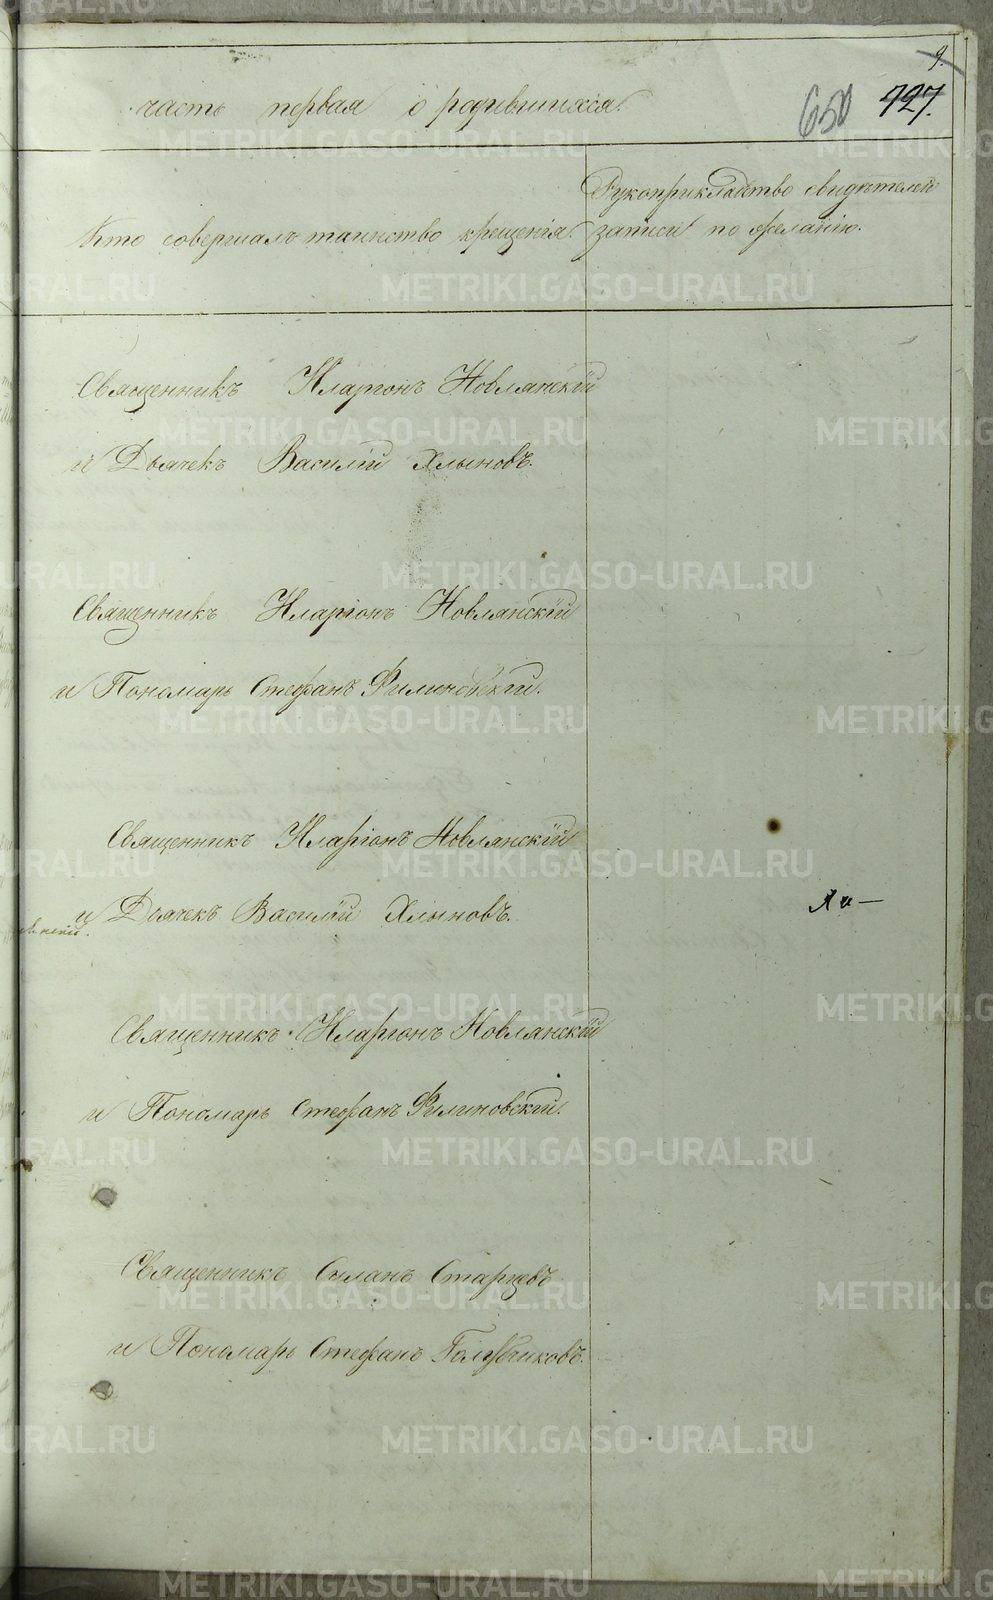 9.
часть первая о родившихся.
650 727.
Кто совершалъ таинство крещенія.
Рукоприкладство свидѣтелей
записи по желанію.
Священникъ Иларіонъ Новлянскій
и Дьячекъ Василій Хлыновъ.
Священникъ Иларіонъ Новлянскій
и Пономарь Стефанъ Филиновскій.
Священникъ Иларіонъ Новлянскій
и Дьячекъ Василій Хлыновъ.
Священникъ Иларіонъ Новлянскій
и Пономарь Стефанъ Филиновскій.
Священникъ Силанъ Старцевъ
и Пономарь Стефанъ Голубчиковъ.
METRIKI.GASO-URAL.RU